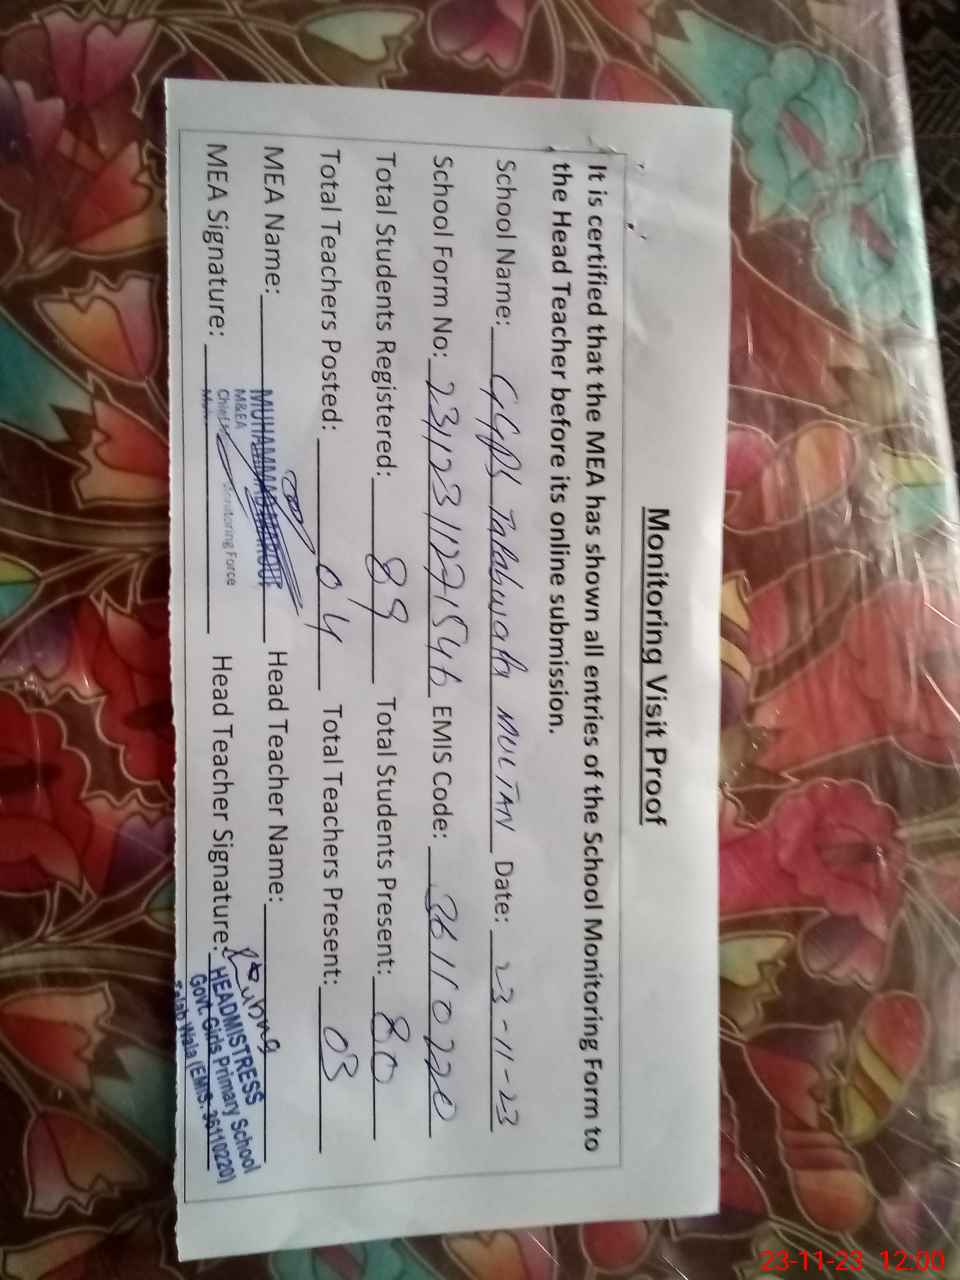 Monitoring Visit Proof
It is certified that the MEA has shown all entries of the School Monitoring Form to
the Head Teacher before its online submission.
School Name: GGPS Talabwala MULTAN Date: 23-11-23
School Form No: 23112311271546 EMIS Code: 36110220
Total Students Registered: 89 Total Students Present: 80
Total Teachers Posted: 04 Total Teachers Present: 03
MEA Name: MUHAMMAD Head Teacher Name:
M&EA
MEA Signature: Monitoring Force Head Teacher Signature:
HEADMISTRESS
Govt. Girls Primary School
Talab Wala (EMIS. 36110220)
23-11-23 12:00